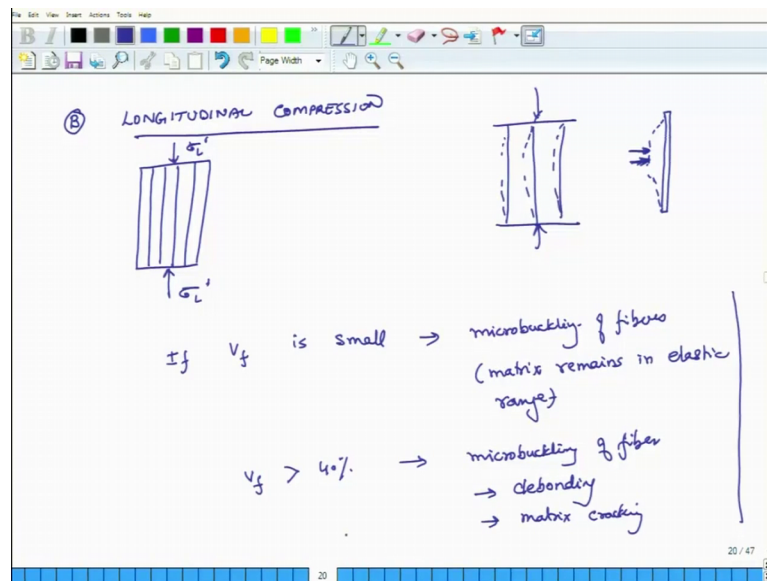 File Edit View Insert Actions Tools Help
B I
Page Width
B LONGITUDINAL COMPRESSION
σL'
σL'
If Vf is small → microbuckling of fibers
(matrix remains in elastic
range)
Vf > 40% → microbuckling of fiber
→ debonding
→ matrix cracking
20 / 47
20